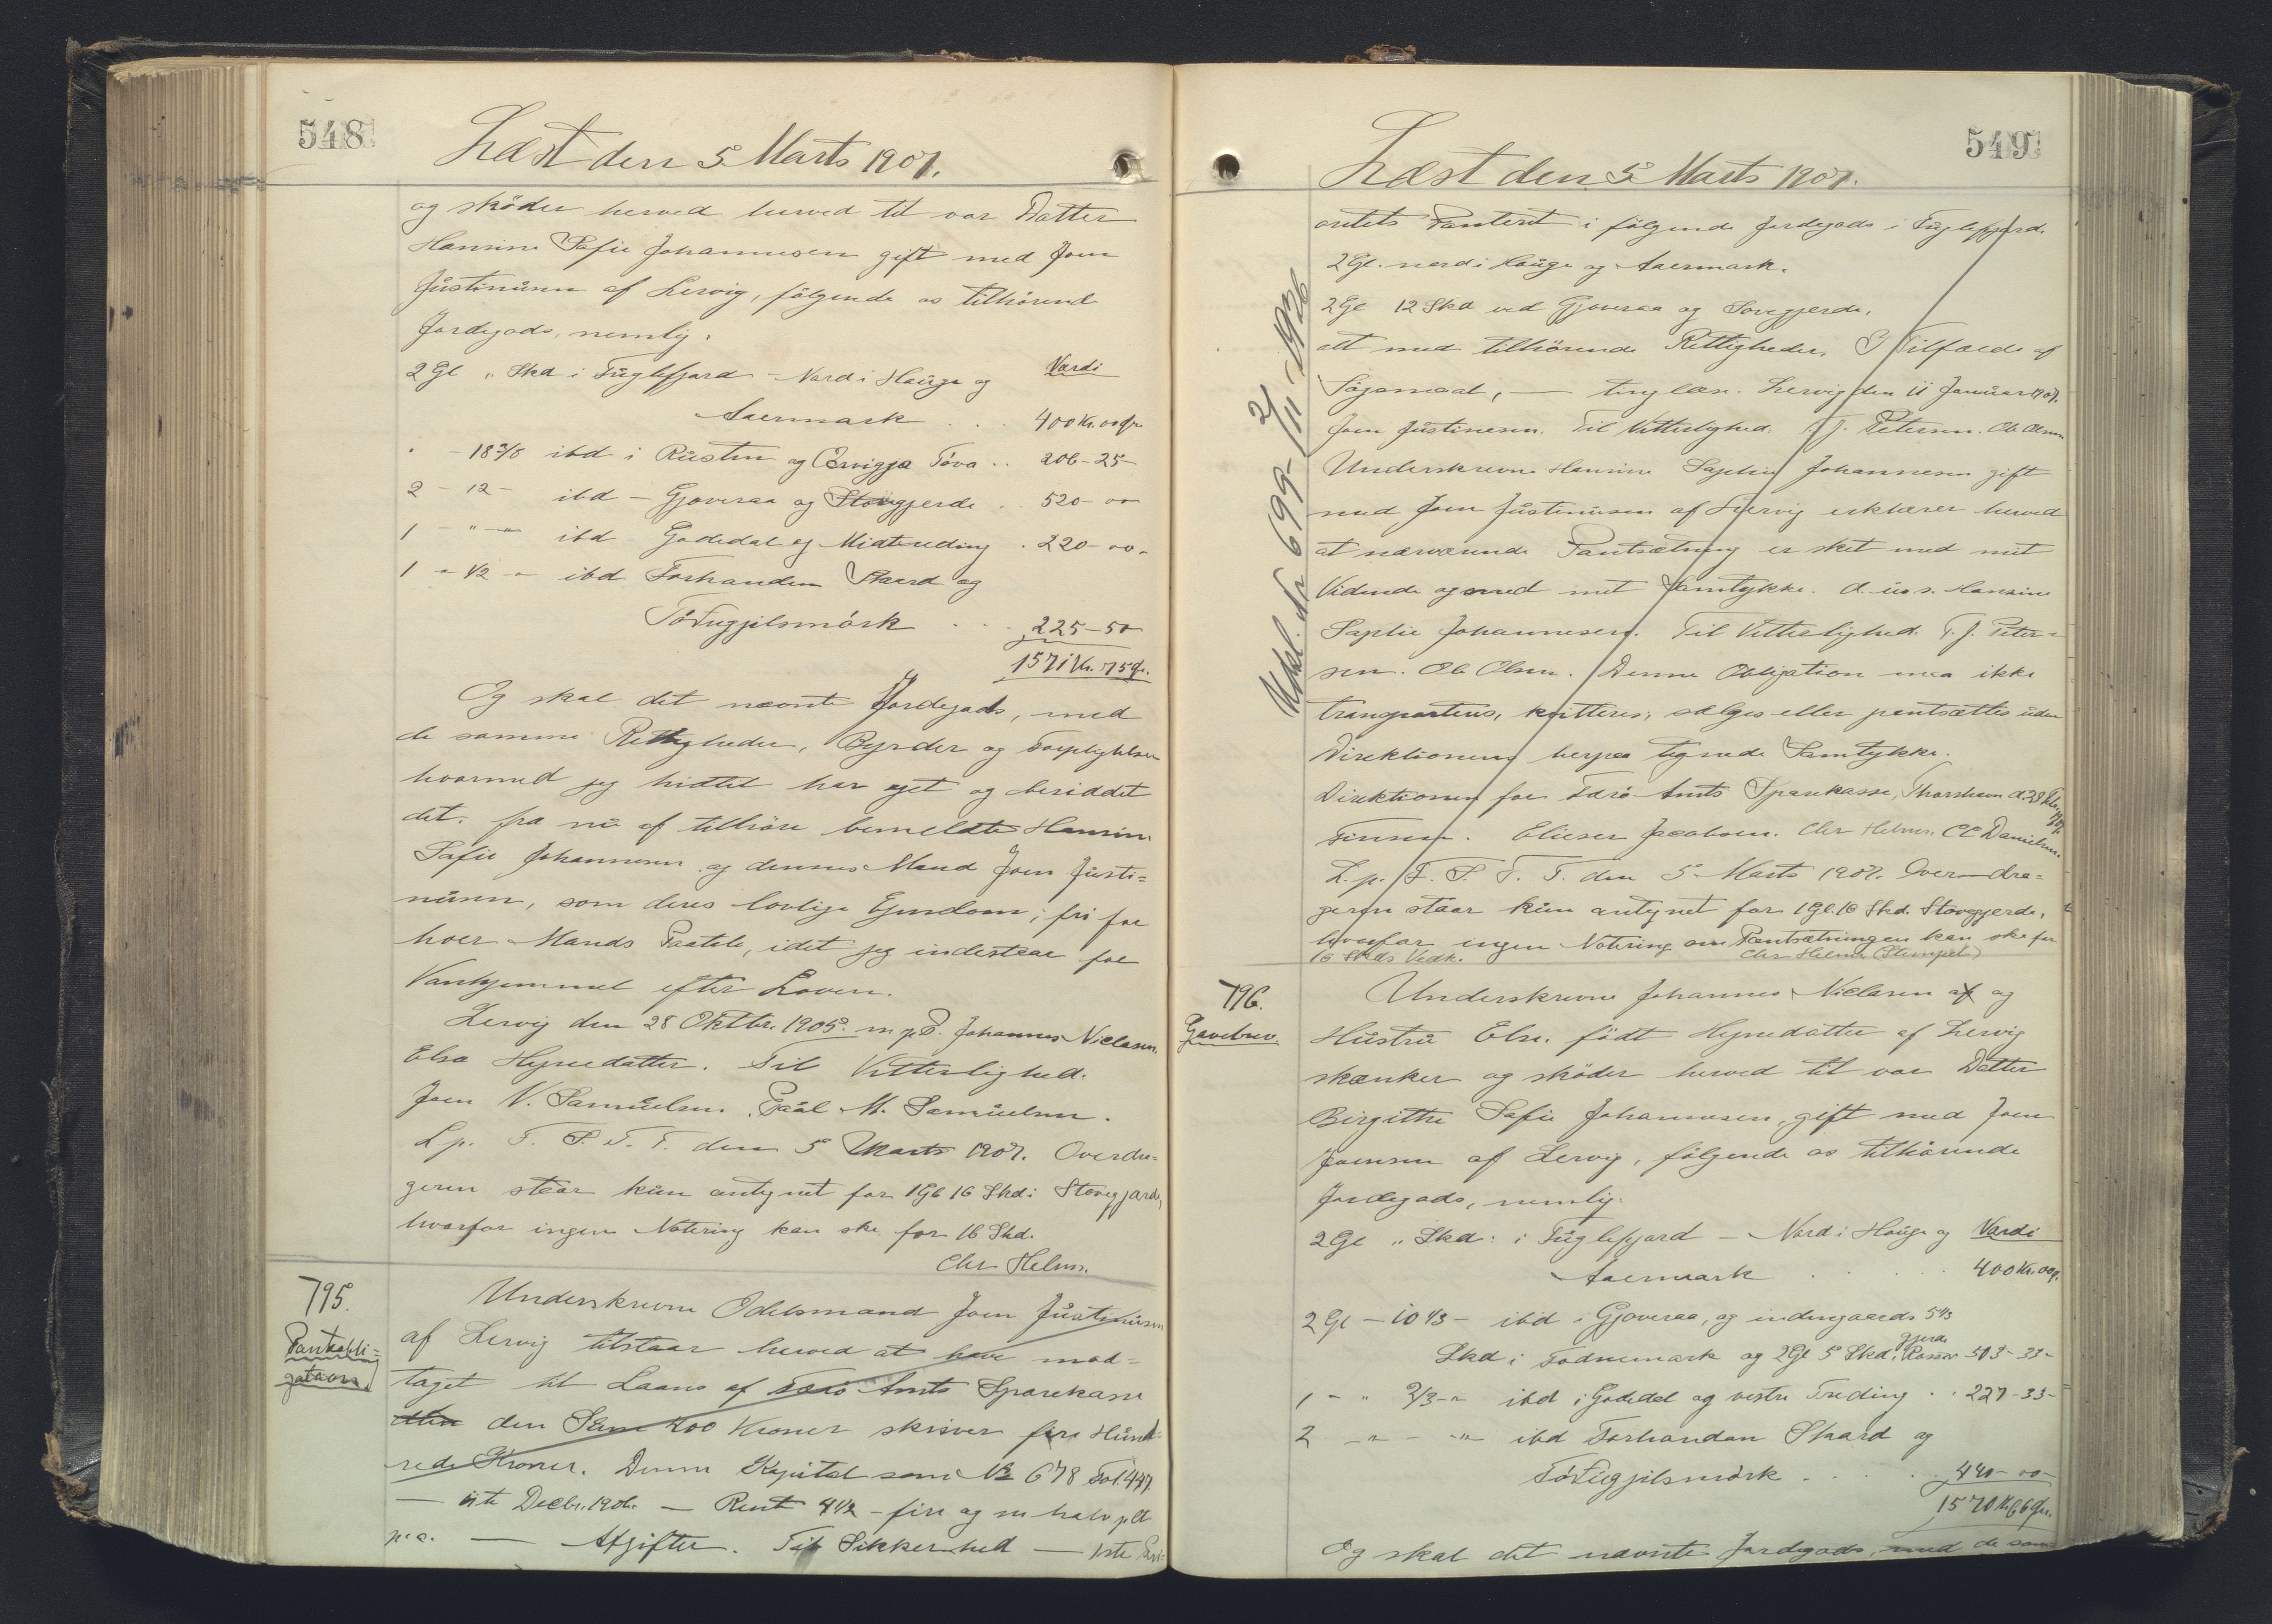 548
Læst den 5 Marts 1907.
og skøder herved herved til vor Datter
Hansine Safie Johannesen gift med Joen
Justinusen af Lervig, følgende os tilhørende
Jordegods, nemlig:
2 Gl „ Skd i Fuglefjord - Nord i Hauge og Værdi
Aaermark . . . 400 Kr. 00 Øre
" - 18 3/8 ibd i Rustin og Tøva .. 206-25-
2 - 12 - ibd - Gjoveraa og Stovgjerde .. 520-00
1 - " - " ibd Gadedal og Midttreding . 220-00-
1 - 1/2 - ibd Forhandan Skaard og
Tøvugjilsmørk . . . 225-50
1571 Kr. 75 Øre.
Og skal det nævnte Jordegods, med
de samme Rettigheder, Byrder og Forpligtelser
hvormed jeg hidtil har ejet og besiddet
det, fra nu af tilhøre bemeldte Hansine
Safie Johannesen og dennes Mand Joen Justi=
nusen, som deres lovlige Ejendom, fri for
hver Mands Paatale, idet jeg indestaar for
Vanhjemmel efter Loven.
Lervig den 28 Oktbr. 1905. m.p.P. Johannes Nielasen.
Elsa Hejnedatter. Til Vitterlighed.
Joen N. Samuelsen. Paul M. Samuelsen.
L.p. F. S. T. T. den 5 Marts 1907. Overdra=
geren staar kun antegnet for 1 Gl 16 Skd i Stovgjerde,
hvorfor ingen Notering kan ske for 16 Skd.
Chr Helms.
795.
Pantobli=
gation.
Underskrevne Odelsmand Joen Justinusen
af Lervig tilstaar herved at have mod=
taget til Laans af Færø Amts Sparekasse
den Sum 400 Kroner skriver fire Hund=
rede Kroner. Denne Kapital som No 678 Fol. 447.
— 11te Decbr. 1906. — Rent 4 1/2 - fire og en halv pCt
p.a. — Afgifter. Til Sikkerhed — 1ste Pri=
549
Læst den 5 Marts 1907.
oritets Panteret i følgende Jordegods i Fuglefjord.
2 Gl. nord i Hauge og Aaermark.
2 Gl 12 Skd ved Gjoveraa og Stovgjerde,
alt med tilhørende Rettigheder. I Tilfælde af
Søgsmaal, — tinglæs. Lervig den 11 Januar 1907.
Joen Justinesen. Til Vitterlighed. T. J. Petersen. Ole Olsen
Underskrevne Hansine Saphie Johannesen gift
med Joen Justinusen af Lervig erklærer herved
at nærværende Pantsætning er sket med mit
Vidende og med mit Samtykke. d. u. s. Hansine
Saphie Johannesen. Til Vitterlighed. T. J. Peter=
sen. Ole Olsen. Denne Obligation maa ikke
transporteres, kvitteres, sælges eller pantsættes uden
Direktionens herpaa tegnede Samtykke.
Direktionen for Færø Amts Sparekasse, Thorshavn d. 28 Febr. 1907.
Finsen. Elieser Jacobsen. Chr Helms. CC Danielsen.
L.p. F. S. T. T. den 5 Marts 1907. Overdra=
geren staar kun antegnet for 1 Gl. 16 Skd. Stovgjerde,
hvorfor ingen Notering om Pantsætningen kan ske for
16 Skds Vedk. Chr Helms (Stempel)
Udsl. No 699 - 2/11 - 1926
796.
Gavebrev.
Underskrevne Johannes Nielasen af og
Hustru Else. født Hejnedatter af Lervig
skænker og skøder herved til vor Datter
Birgithe Safie Johannesen, gift med Joen
Joensen af Lervig, følgende os tilhørende
Jordegods, nemlig:
2 Gl „ Skd: i Fuglefjord - Nord i Hauge og Værdi
Aaermark . . . 400 Kr. 00 Ø.
2 Gl - 10 1/3 - ibd i Gjoveraa, og indengaards 5 1/3
Skd i Todnemark og 2 Gl 5 Skd. i gjerde 513-33-
1 - " 2/3 - " ibd i Gadedal og vestre Treding .. 227-33-
2 - " - " ibd Forhandan Skard og
Tøvugjilsmørk . . . 440-00-
1570 Kr. 66 Øre.
Og skal det nævnte Jordegods, med de sam